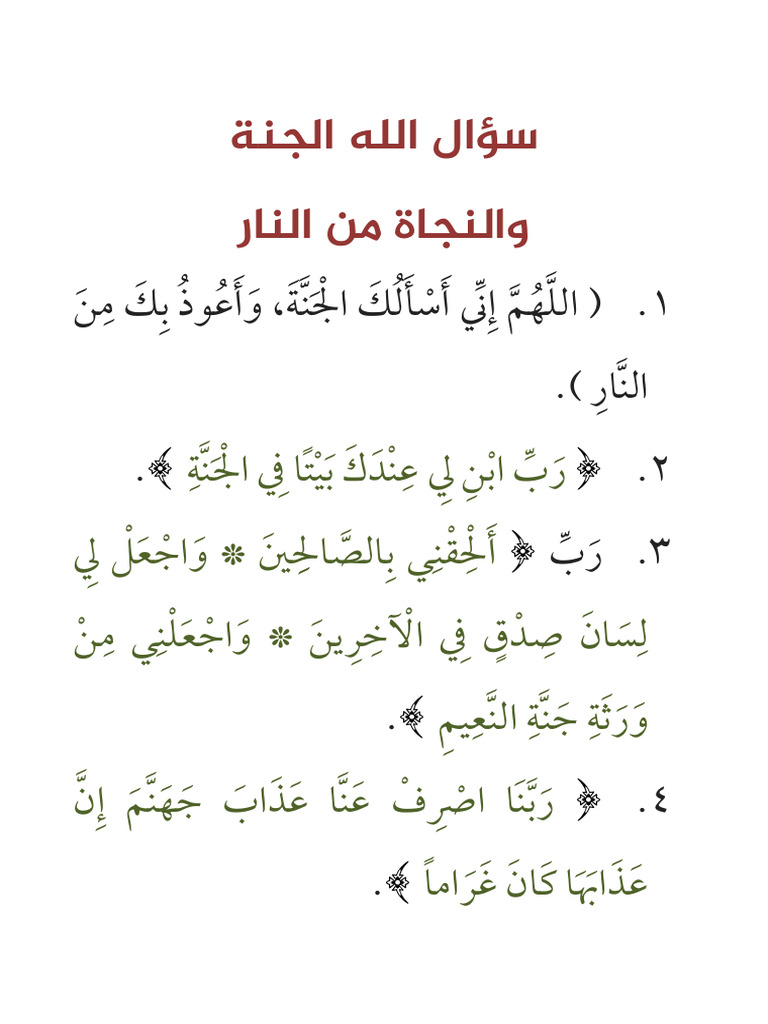 سؤال الله الجنة
والنجاة من النار
١. ( اللَّهُمَّ إِنِّي أَسْأَلُكَ الْجَنَّةَ، وَأَعُوذُ بِكَ مِنَ
النَّارِ ).
٢. ﴿ رَبِّ ابْنِ لِي عِنْدَكَ بَيْتًا فِي الْجَنَّةِ ﴾.
٣. رَبِّ ﴿ أَلْحِقْنِي بِالصَّالِحِينَ ❊ وَاجْعَلْ لِي
لِسَانَ صِدْقٍ فِي الْآخِرِينَ ❊ وَاجْعَلْنِي مِنْ
وَرَثَةِ جَنَّةِ النَّعِيمِ ﴾.
٤. ﴿ رَبَّنَا اصْرِفْ عَنَّا عَذَابَ جَهَنَّمَ إِنَّ
عَذَابَهَا كَانَ غَرَاماً ﴾.